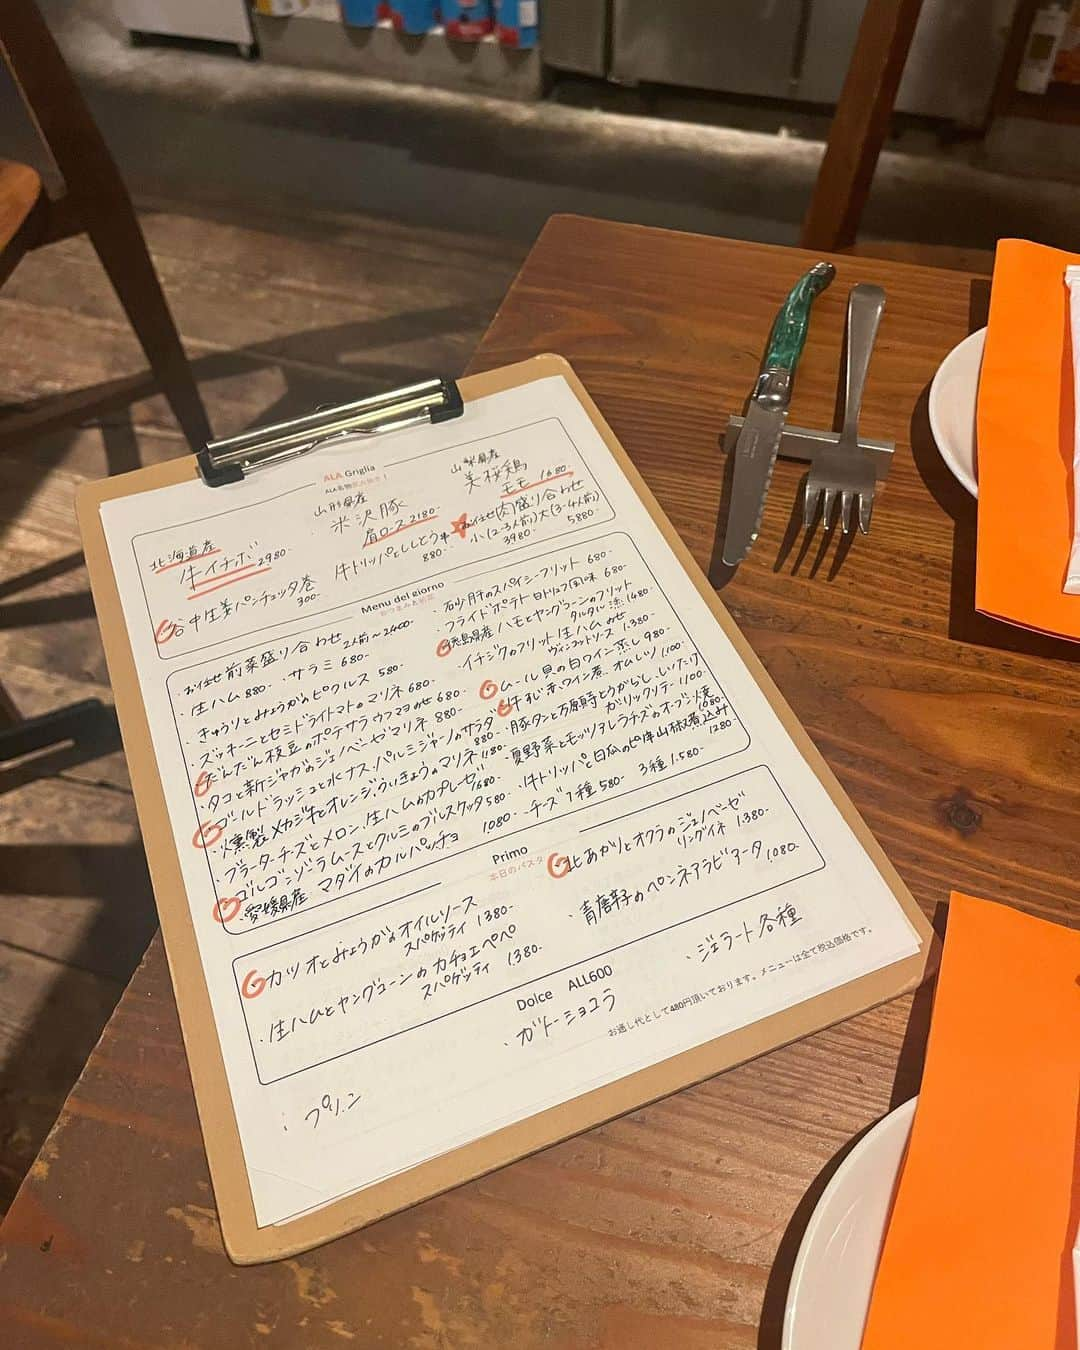 ALA Griglia
北海道産
牛イチボ 2980-
山形県産
米沢豚
肩ロース 2180-
山梨県産
美桜鶏
モモ 1680-
谷中生姜パンチェッタ巻
300-
牛トリッパとししとう串
880-
お任せ(肉)盛り合わせ
小(2-3人前) 大(3-4人前)
3980- 5880-
Menu del giorno
・お任せ前菜盛り合わせ 2人前〜2400
・生ハム 880- ・サラミ 680-
・きゅうりとみょうがのピクルス 580-
・ズッキーニとセミドライトマトのマリネ 680-
だんだん枝豆のポテサラウフマヨのせ 680-
・タコと新ジャガのジェノベーゼマリネ 880-
ゴールドラッシュと水ナス、パルミジャーノのサラダ 880-
・燻製メカジキとオレンジ、ういきょうのマリネ 1180-
・ブラータチーズとメロン、生ハムのカプレーゼ 1680-
ゴルゴンゾーラムースとクルミのブルスケッタ 580-
・愛媛県産 マダイのカルパッチョ 1080-
・砂肝のスパイシーフリット 680-
・フライドポテト 白トリュフ風味 680-
徳島県産 ハモとヤングコーンのフリット
タルタル添 1480-
・イチジクのフリット 生ハムのせ
ヴィンコットソース 1380-
ムール貝の白ワイン蒸し 980-
牛すじ赤ワイン煮 オムレツ 1100-
・豚タンと万願寺とうがらし、しいたけ
ガーリックソテー 1100-
・夏野菜とモッツァレラチーズのオーブン焼 1680-
・牛トリッパと白瓜のピ辛山椒煮込み
1280-
・チーズ 1種 580- 3種 1580-
Primo
本日のパスタ
カツオとみょうがのオイルソース
スパゲッティ 1380-
・生ハムとヤングコーンのカチョエペペ
スパゲッティ 1380-
・北あかりとオクラのジェノベーゼ
リングイネ 1380-
・青唐辛子のペンネアラビアータ 1080-
Dolce ALL600
・プリン
・ガトーショコラ
・ジェラート各種
お通し代として480円頂いております。メニューは全て税込価格です。